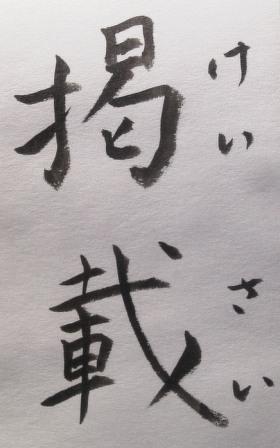 掲載
けいさい